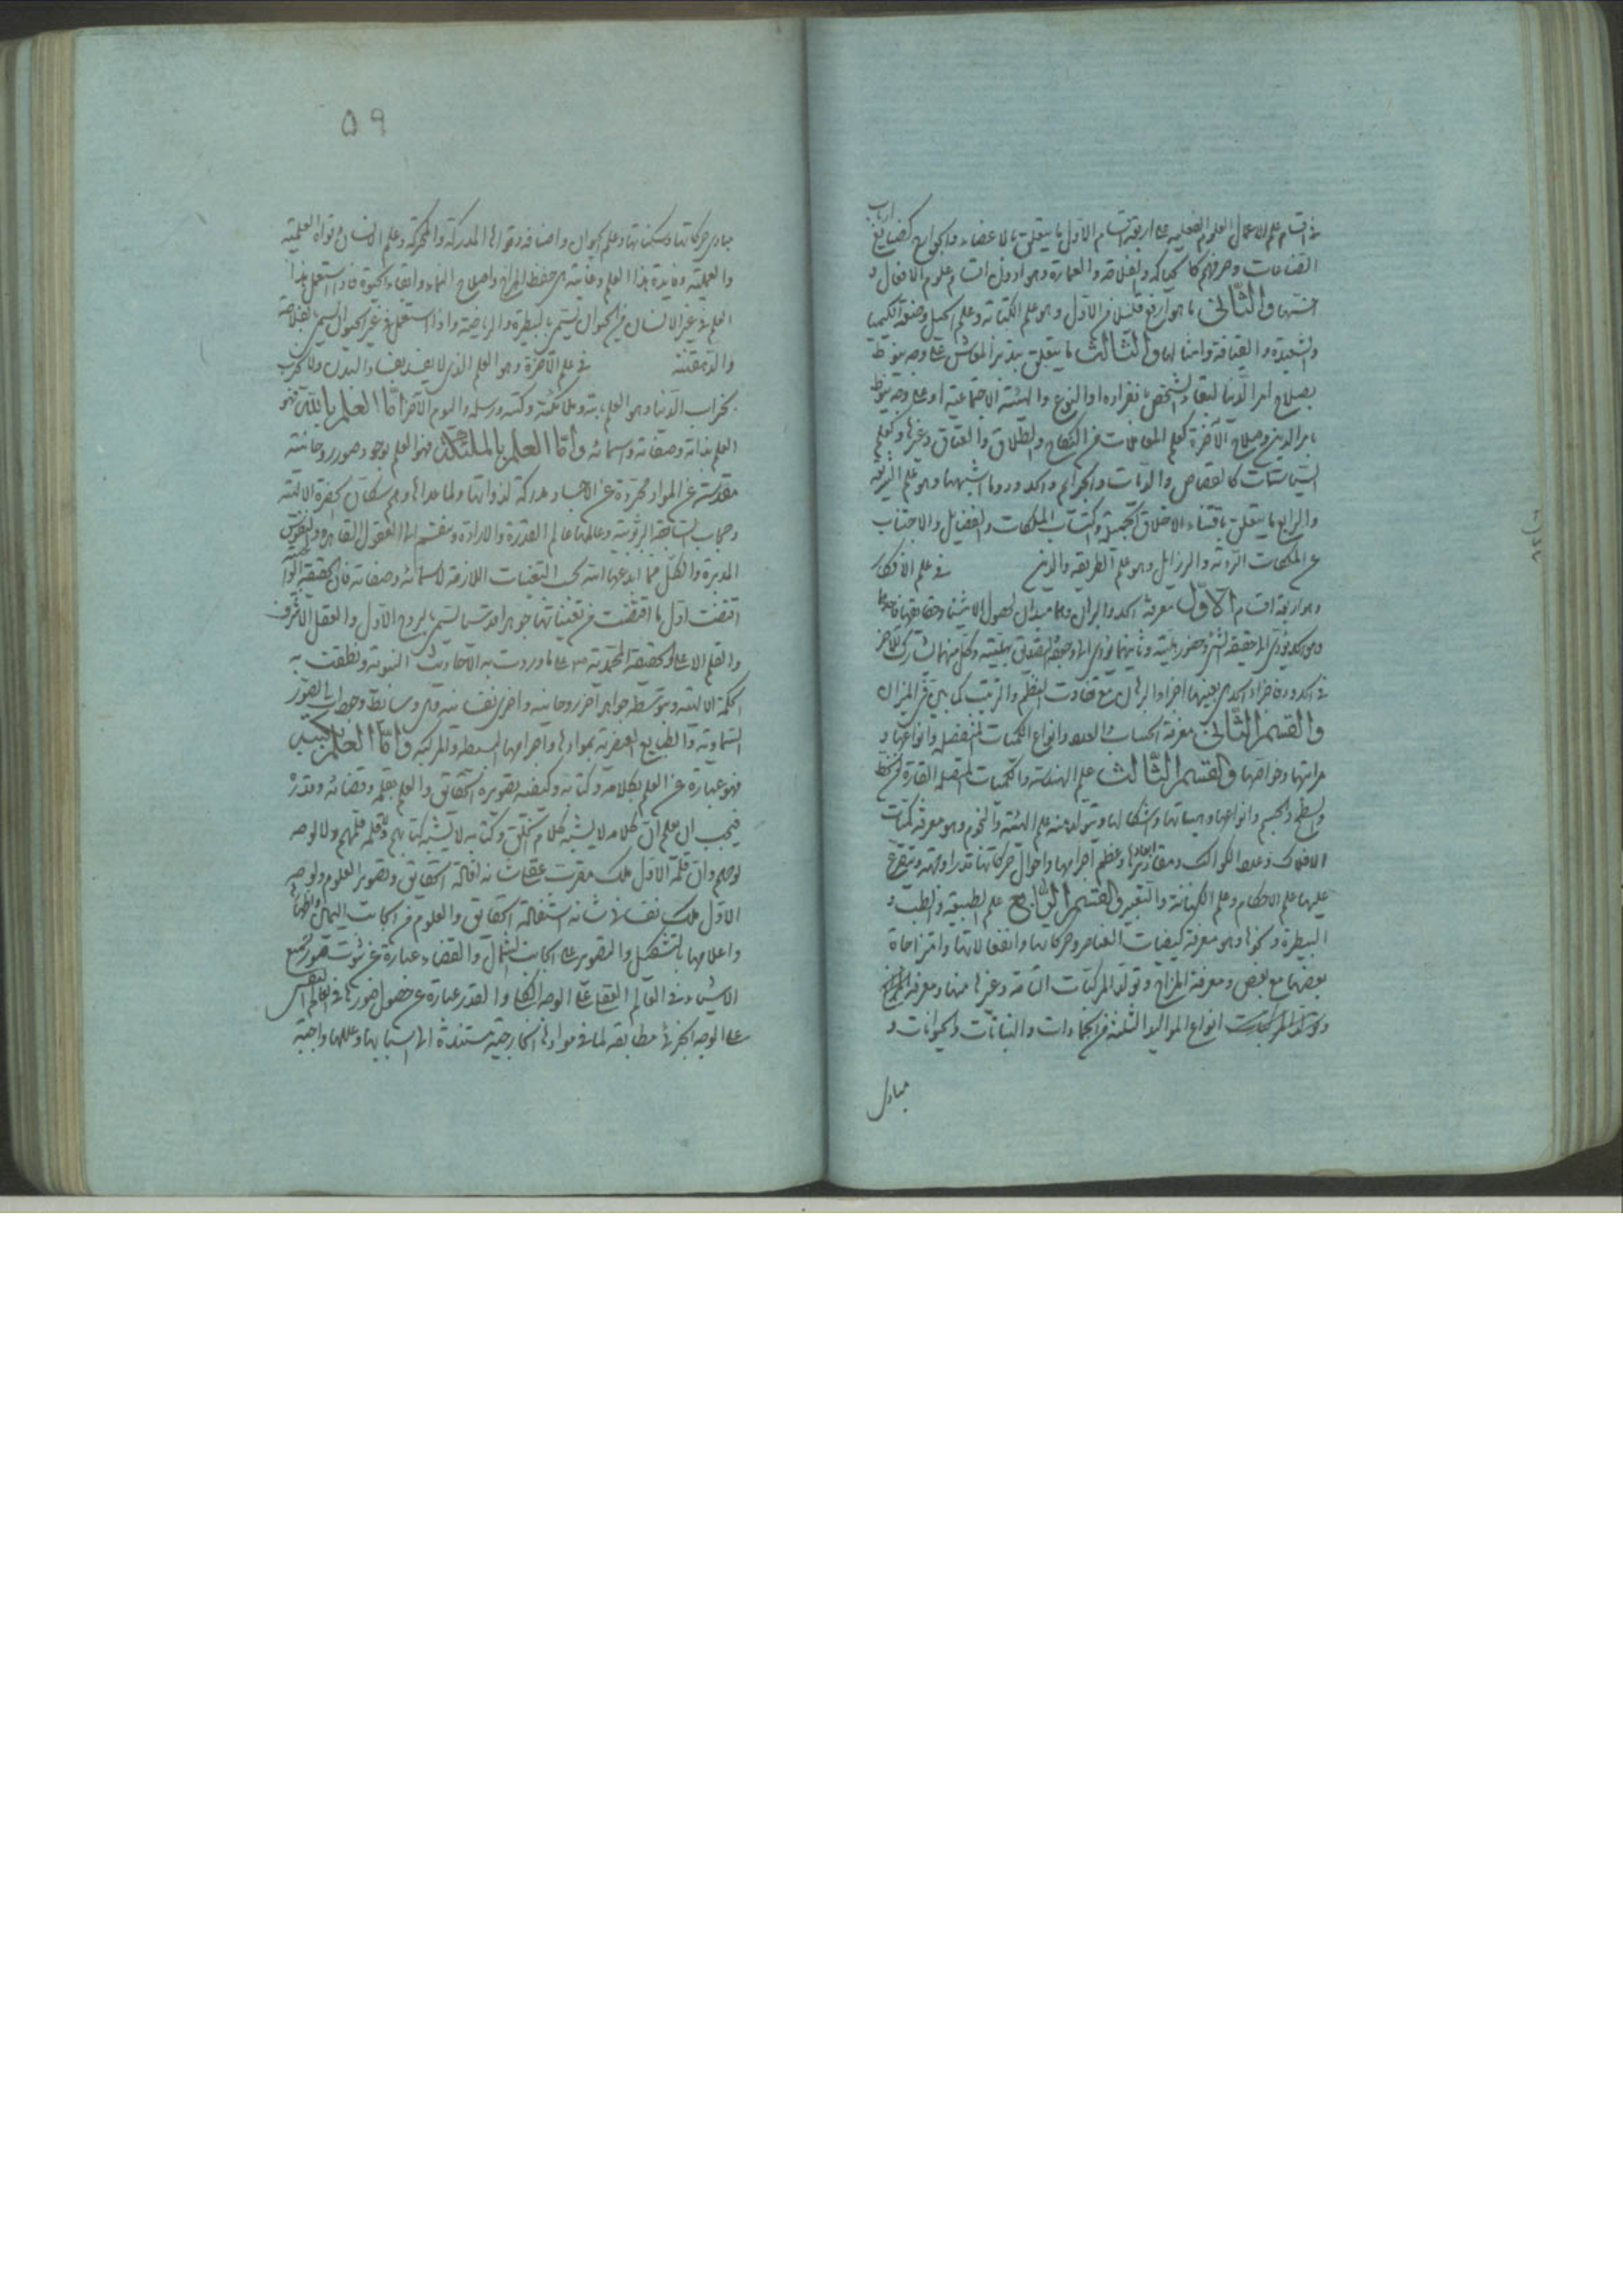 في اقسام علم الاعمال العلوم الفعلية على اربعة اقسام الاول ما يتعلق بالاعضاء والجوارح كصنايع ارباب
الصناعات وحرفهم كالحياكة والفلاحة والعمارة وهو ادون اقسام علوم الافعال و
اخسّها والثاني ما هو ارفع قليلا من الاول وهو علم الكتابة وعلم الحيل وصنعة الكيميا
والشعبدة والقيافة وامثالها والثالث ما يتعلق بتدبير المعاش على وجه ينوط
بصلاح امر الدنيا لبقاء الشخص بانفراده او النوع والهيئة الاجتماعية او على وجه ينوط
بامر الدين وصلاح الآخرة كعلم المعاملات من النكاح والطلاق والعتاق وغيرها وكعلم
السياسات كالقصاص والديات والجرايم والحدود وما اشبهها وهو علم الشريعة
والرابع ما يتعلق باقتناء الاخلاق الجميلة واكتساب الملكات والفضايل والاجتناب
عن الملكات الردية والرزايل وهو علم الطريقة والدين في علم الافكار
وهو اربعة اقسام الاول معرفة الحد والبرهان وهما مبدأان لحصول الاشياء وحقائقها فاحدهما
وهو الحد يؤدي الى حقيقة الشيء وحضور ماهيته وثانيهما يؤدي الى وجه التصديق بهليته وكل منهما يشارك للآخر
في الحدود فاجزاء الحد هي بعينها اجزاء البرهان مع تفاوت النظم والترتيب كما بين في الميزان
والقسم الثاني معرفة الحساب والعدد وانواع الكميات المنفصلة وانواعها و
مراتبها وخواصها والقسم الثالث علم الهندسة والكميات المتصلة القارة من الخط
والسطح والجسم وانواعها وهيئاتها واشكالها ويتولد منه علم الهيئة والنجوم وهو معرفة كميات
الافلاك وعدد الكواكب ومقاديرها وابعادها وعظم اجرامها واحوال حركاتها قدرا وجهة ويتفرع
عليها علم الاحكام وعلم الكهانة والتعبير والقسم الرابع علم الطبيعة والطب و
البيطرة ونحوها وهو معرفة كيفيات العناصر وحركاتها وانفعالاتها وامتزاجاة
بعضها مع بعض ومعرفة المزاج وتولد المركبات التامة وغيرها منها ومعرفة المزاج
وتولد المركبات انواع المواليد الثلثة من الجمادات والنباتات والحيوانات و
مبادي
٥٩
مبادي حركاتها وسكناتها وعلم الحيوان واصنافه وقواها المدركة والمحركة وعلم الانسان وقواه العلمية
والعملية وفايدة هذا العلم وغايته هي حفظ المزاج واصلاح النماء وابقاء الحيوة فاذا استعمل هذا
العلم في غير الانسان من الحيوان يسمى بالبيطرة والرياضية واذا استعمل في غير الحيوان يسمى بالفلاحة
والدهقنة في علم الآخرة وهو العلم الذي لا يفسد بفساد البدن ولا يخرب
بخراب الدنيا وهو العلم بالله وملائكته وكتبه ورسله واليوم الآخر اما العلم بالله فهو
العلم بذاته وصفاته واسمائه واما العلم بالملئكة فهو العلم بوجود صور روحانية
مقدسة عن المواد مجردة عن الاجساد مدركة لذواتها ولما عداها وهم سكان الحضرة الالهية
وحجاب الربوبية وعالمها عالم القدرة والارادة وينقسم الى العقول القاهرة والنفوس
المدبرة والكل مما ابدعها الله بحسب التعينات اللازمة لاسمائه وصفاته فان الحقيقة
اقتضت اول ما اقتضت من تعيناتها جوهرا قدسيا يسمى بالروح الاول والعقل الاشرف
والقلم الاعلى والحقيقة المحمدية على ما وردت به الاحاديث النبوية ونطقت به
الحكمة الالهية وبتوسطه جواهر اخر روحانية واخرى نفسانية هي وسائط وجود الصور
السماوية والطبايع العنصرية بموادها واجرامها البسيطة والمركبة واما العلم بكتبه
فهو عبارة عن العلم بكلامه وكتابه وكيفية تصويره الحقايق والعلم بقلمه وقضائه وقدره
فيجب ان يعلم ان كلامه لا يشبه كلام الخلق وكتابه لا يشبه كتابهم ولا قلمه قلمهم ولا لوحه
لوحهم وان قلمه الاول ملك مقرب عقلي شانه افاضة الحقايق وتصوير العلوم ولوحه
الاول ملك نفساني شانه استفاضة الحقايق والعلوم من الجانب اليمين
واعلامها بالتشكيل والتصوير على الجانب الشمال والقضاء عبارة عن ثبوت صور جميع
الاشياء في العالم العقلي على الوجه الكلي والقدر عبارة عن حصول صورها في العالم النفسي
على الوجه الجزئي مطابقة لما في موادها الخارجية مستندة الى اسبابها وعللها واجبة